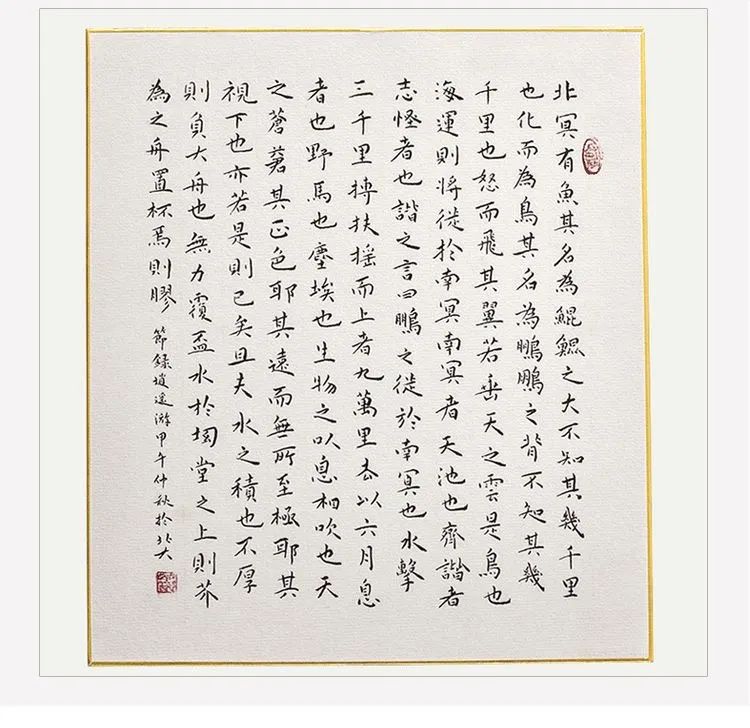 北冥有魚其名為鯤鯤之大不知其幾千里
也化而為鳥其名為鵬鵬之背不知其幾
千里也怒而飛其翼若垂天之雲是鳥也
海運則將徙於南冥南冥者天池也齊諧者
志怪者也諧之言曰鵬之徙於南冥也水擊
三千里摶扶搖而上者九萬里去以六月息
者也野馬也塵埃也生物之以息相吹也天
之蒼蒼其正色耶其遠而無所至極耶其
視下也亦若是則已矣且夫水之積也不厚
則負大舟也無力覆盃水於坳堂之上則芥
為之舟置杯焉則膠 節錄逍遙游甲午仲秋於北大